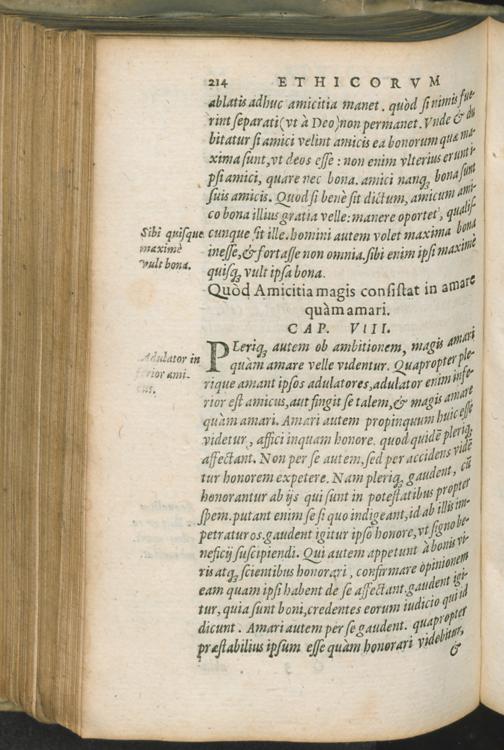 214 ETHICORVM
ablatis adhuc amicitia manet. quòd si nimis fue-
rint separati (vt à Deo) non permanet. Vnde & du
bitatur si amici velint amicis ea bonorum quæ ma-
xima sunt, vt deos esse: non enim vlterius erunt i-
psi amici, quare nec bona. amici nanq; bona sunt
suis amicis. Quod si benè sit dictum, amicum ami-
co bona illius gratia velle: manere oportet, qualis-
cunque sit ille. homini autem volet maxima bona
inesse, & fortasse non omnia. sibi enim ipsi maximè
quisq; vult ipsa bona.
Sibi quisque
maximè
vult bona.
Quòd Amicitia magis consistat in amare
quàm amari.
CAP. VIII.
PLeriq; autem ob ambitionem, magis amari
quàm amare velle videntur. Quapropter ple-
rique amant ipsos adulatores, adulator enim infe-
rior est amicus, aut fingit se talem, & magis amare
quàm amari. Amari autem propinquum huic esse
videtur, affici inquam honore. quod quidē pleriq;
affectant. Non per se autem, sed per accidens vidē
tur honorem expetere. Nam pleriq; gaudent, cū
honorantur ab ijs qui sunt in potestatibus propter
spem. putant enim se si quo indigeant, id ab illis im-
petraturos. gaudent igitur ipso honore, vt signo be-
neficij suscipiendi. Qui autem appetunt à bonis vi-
ris atq; scientibus honorari, confirmare opinionem
eam quam ipsi habent de se affectant. gaudent igi-
tur, quia sunt boni, credentes eorum iudicio qui id
dicunt. Amari autem per se gaudent. quapropter
præstabilius ipsum esse quàm honorari videbitur,
&
Adulator in
ferior ami-
cus.